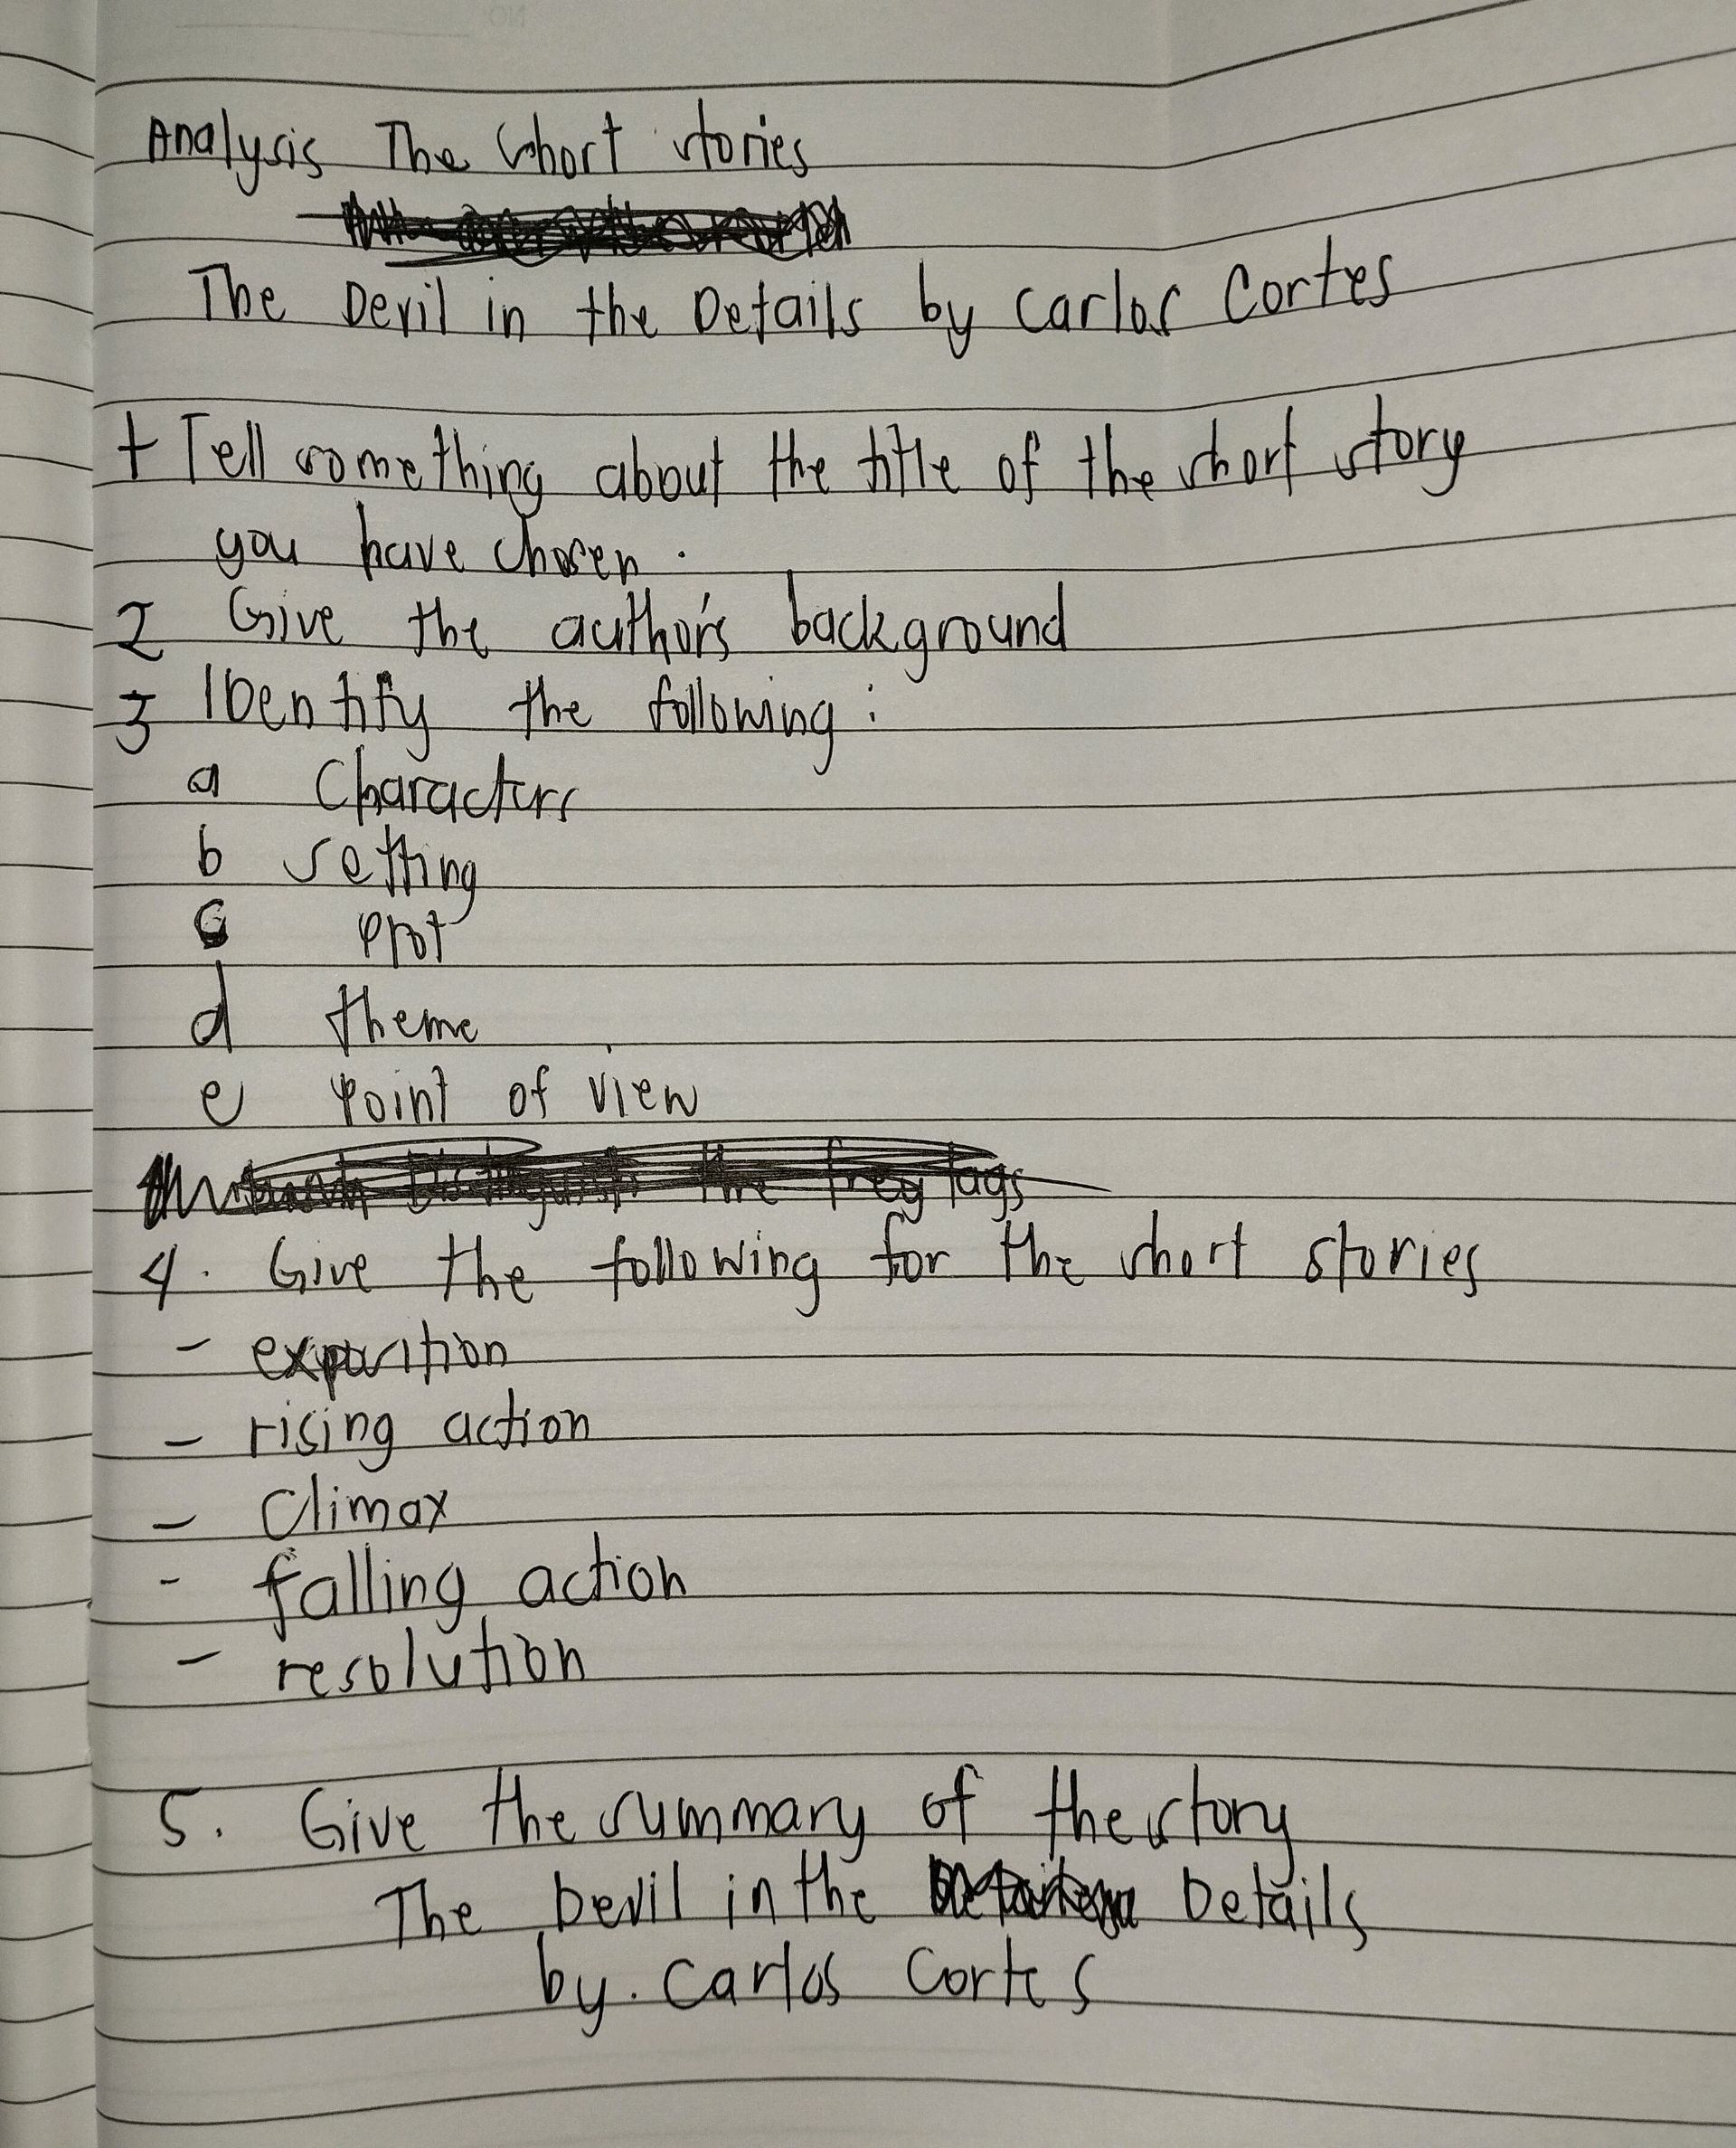 Analysis The short stories
The Devil in the Details by Carlos Cortes
1 Tell something about the title of the short story
you have chosen.
2 Give the author's background
3 IDentify the following:
a Characters
b setting
c Plot
d theme
e Point of view
the freytags
4. Give the following for the short stories
- exposition
- rising action
- Climax
- falling action
- resolution
5. Give the summary of the story
The Devil in the Details
by. Carlos Cortes